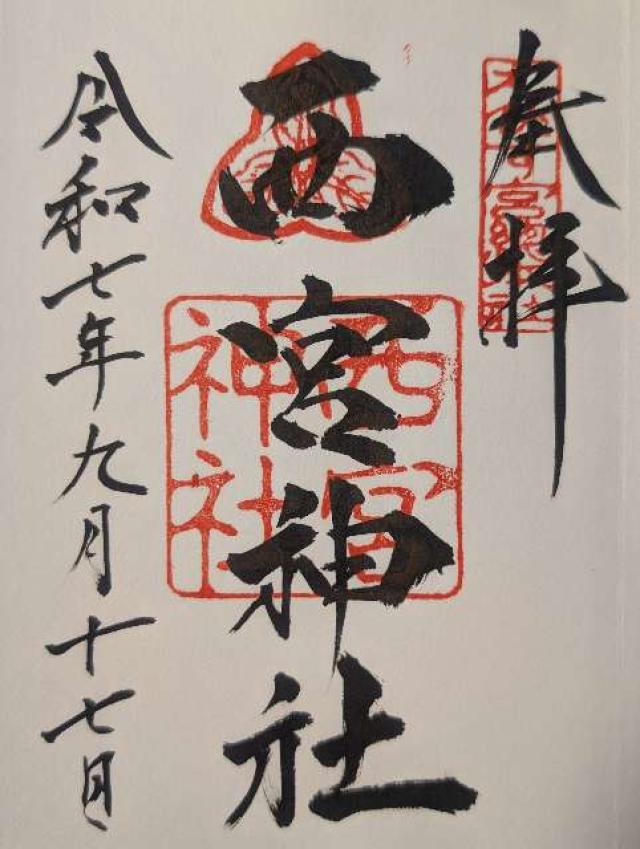 奉拝
西宮神社
西宮
神社
令和七年九月十七日